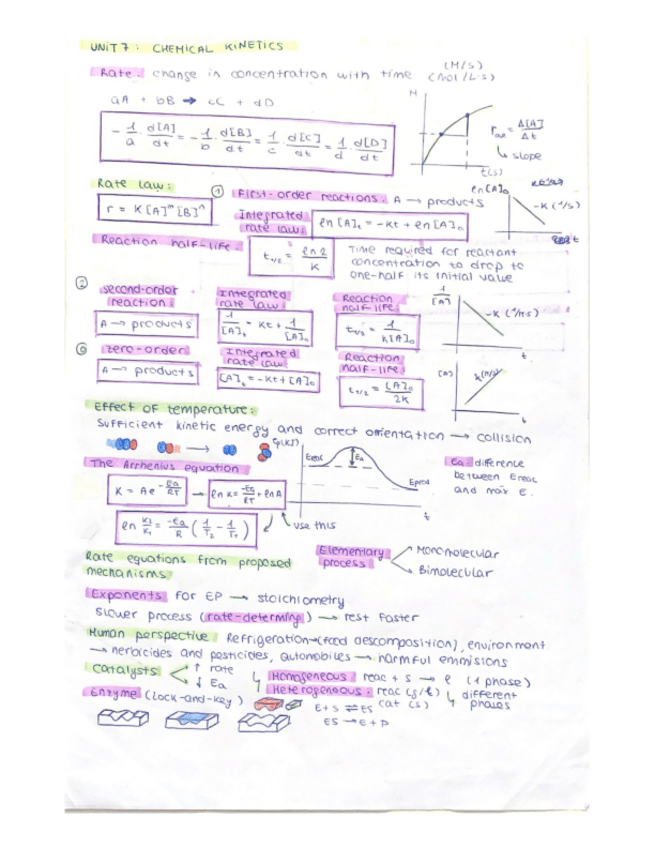 UNIT 7: CHEMICAL KINETICS
Rate: change in concentration with time (M/s) (mol/L·s)
aA + bB → cC + dD
M
- 1/a · d[A]/dt = - 1/b · d[B]/dt = 1/c · d[C]/dt = 1/d · d[D]/dt
= Δ[A]/Δt
↳ slope
t(s)
Rate law:
r = K [A]^m [B]^n
① First-order reactions: A → products
Integrated rate law: ln [A]t = -Kt + ln [A]0
ln [A]0
-K (1/s)
Reaction half-life: t1/2 = ln 2 / K
Time required for reactant
concentration to drop to
one-half its initial value
② second-order reaction:
A → products
Integrated rate law:
1/[A]t = Kt + 1/[A]0
Reaction half-life:
t1/2 = 1/K[A]0
1/[A]
t
zero-order
A → products
Integrated rate law:
[A]t = -Kt + [A]0
Reaction half-life:
t1/2 = [A]0/2K
[A]
t
Effect of temperature:
Sufficient kinetic energy and correct orrientation → collision
Ereac
Ea
Eprod
t
Ea: difference
between Ereac
and max E.
The Arrhenius equation
K = A e^-Ea/RT → ln K = -Ea/RT + ln A
ln K2/K1 = -Ea/R (1/T2 - 1/T1)
use this
Rate equations from proposed
mechanisms
Elementary process
Monomolecular
Bimolecular
Exponents for EP → stoichiometry
Slower process (rate-determing) → rest faster
Human perspective: Refrigeration→(food descomposition), environment
→ herbicides and pesticides, automobiles → harmful emmisions
Catalysts
↑ rate
↓ Ea
↳ Homogeneous: reac + s → l (1 phase)
↳ Heterogeneous: reac (g/l) cat (s) ↳ different phases
Enzyme (Lock-and-key)
E+S ⇌ ES
ES → E+P